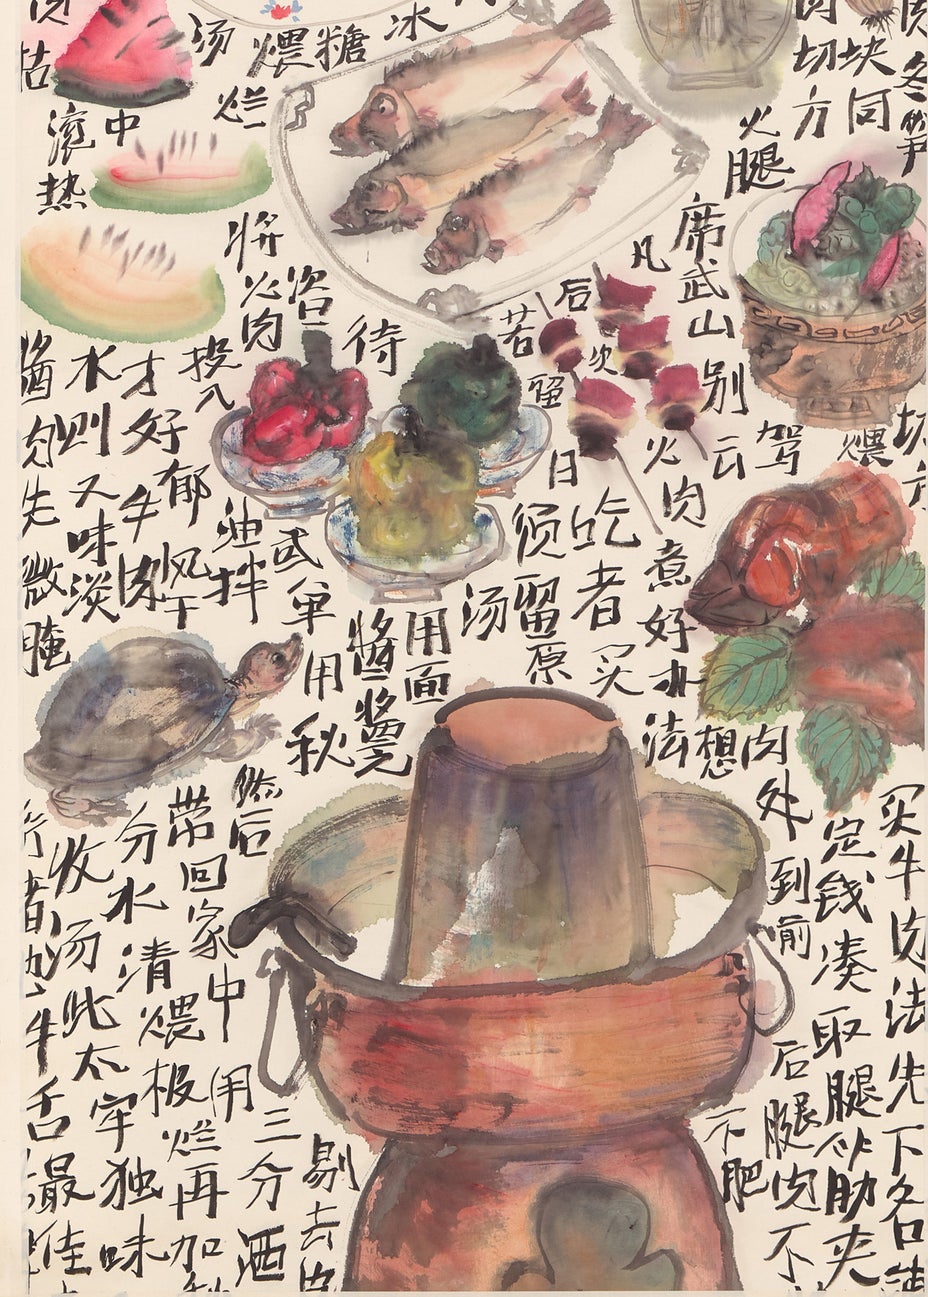 肉冬笋
切方
块同
肉切方
煨
火腿
驾
席武山别云
凡
火肉
意好水法
后
次
吃者买
若留
日须留原
汤
冰
用面
糖
酱
煨
待
武单用秘
汤
烂
将火肉
油拌
投入
郁风干
中
才好牛肉
滚热
水则又味淡
酱肉先微腌
买牛肉法先下各铺
定钱凑取腿筋夹
肉处到前后腿肉不
想
不肥
然后
带回家中
剔去皮
用三分酒
分水清煨极烂再加
收汤此太牢独味
行者加牛舌最佳